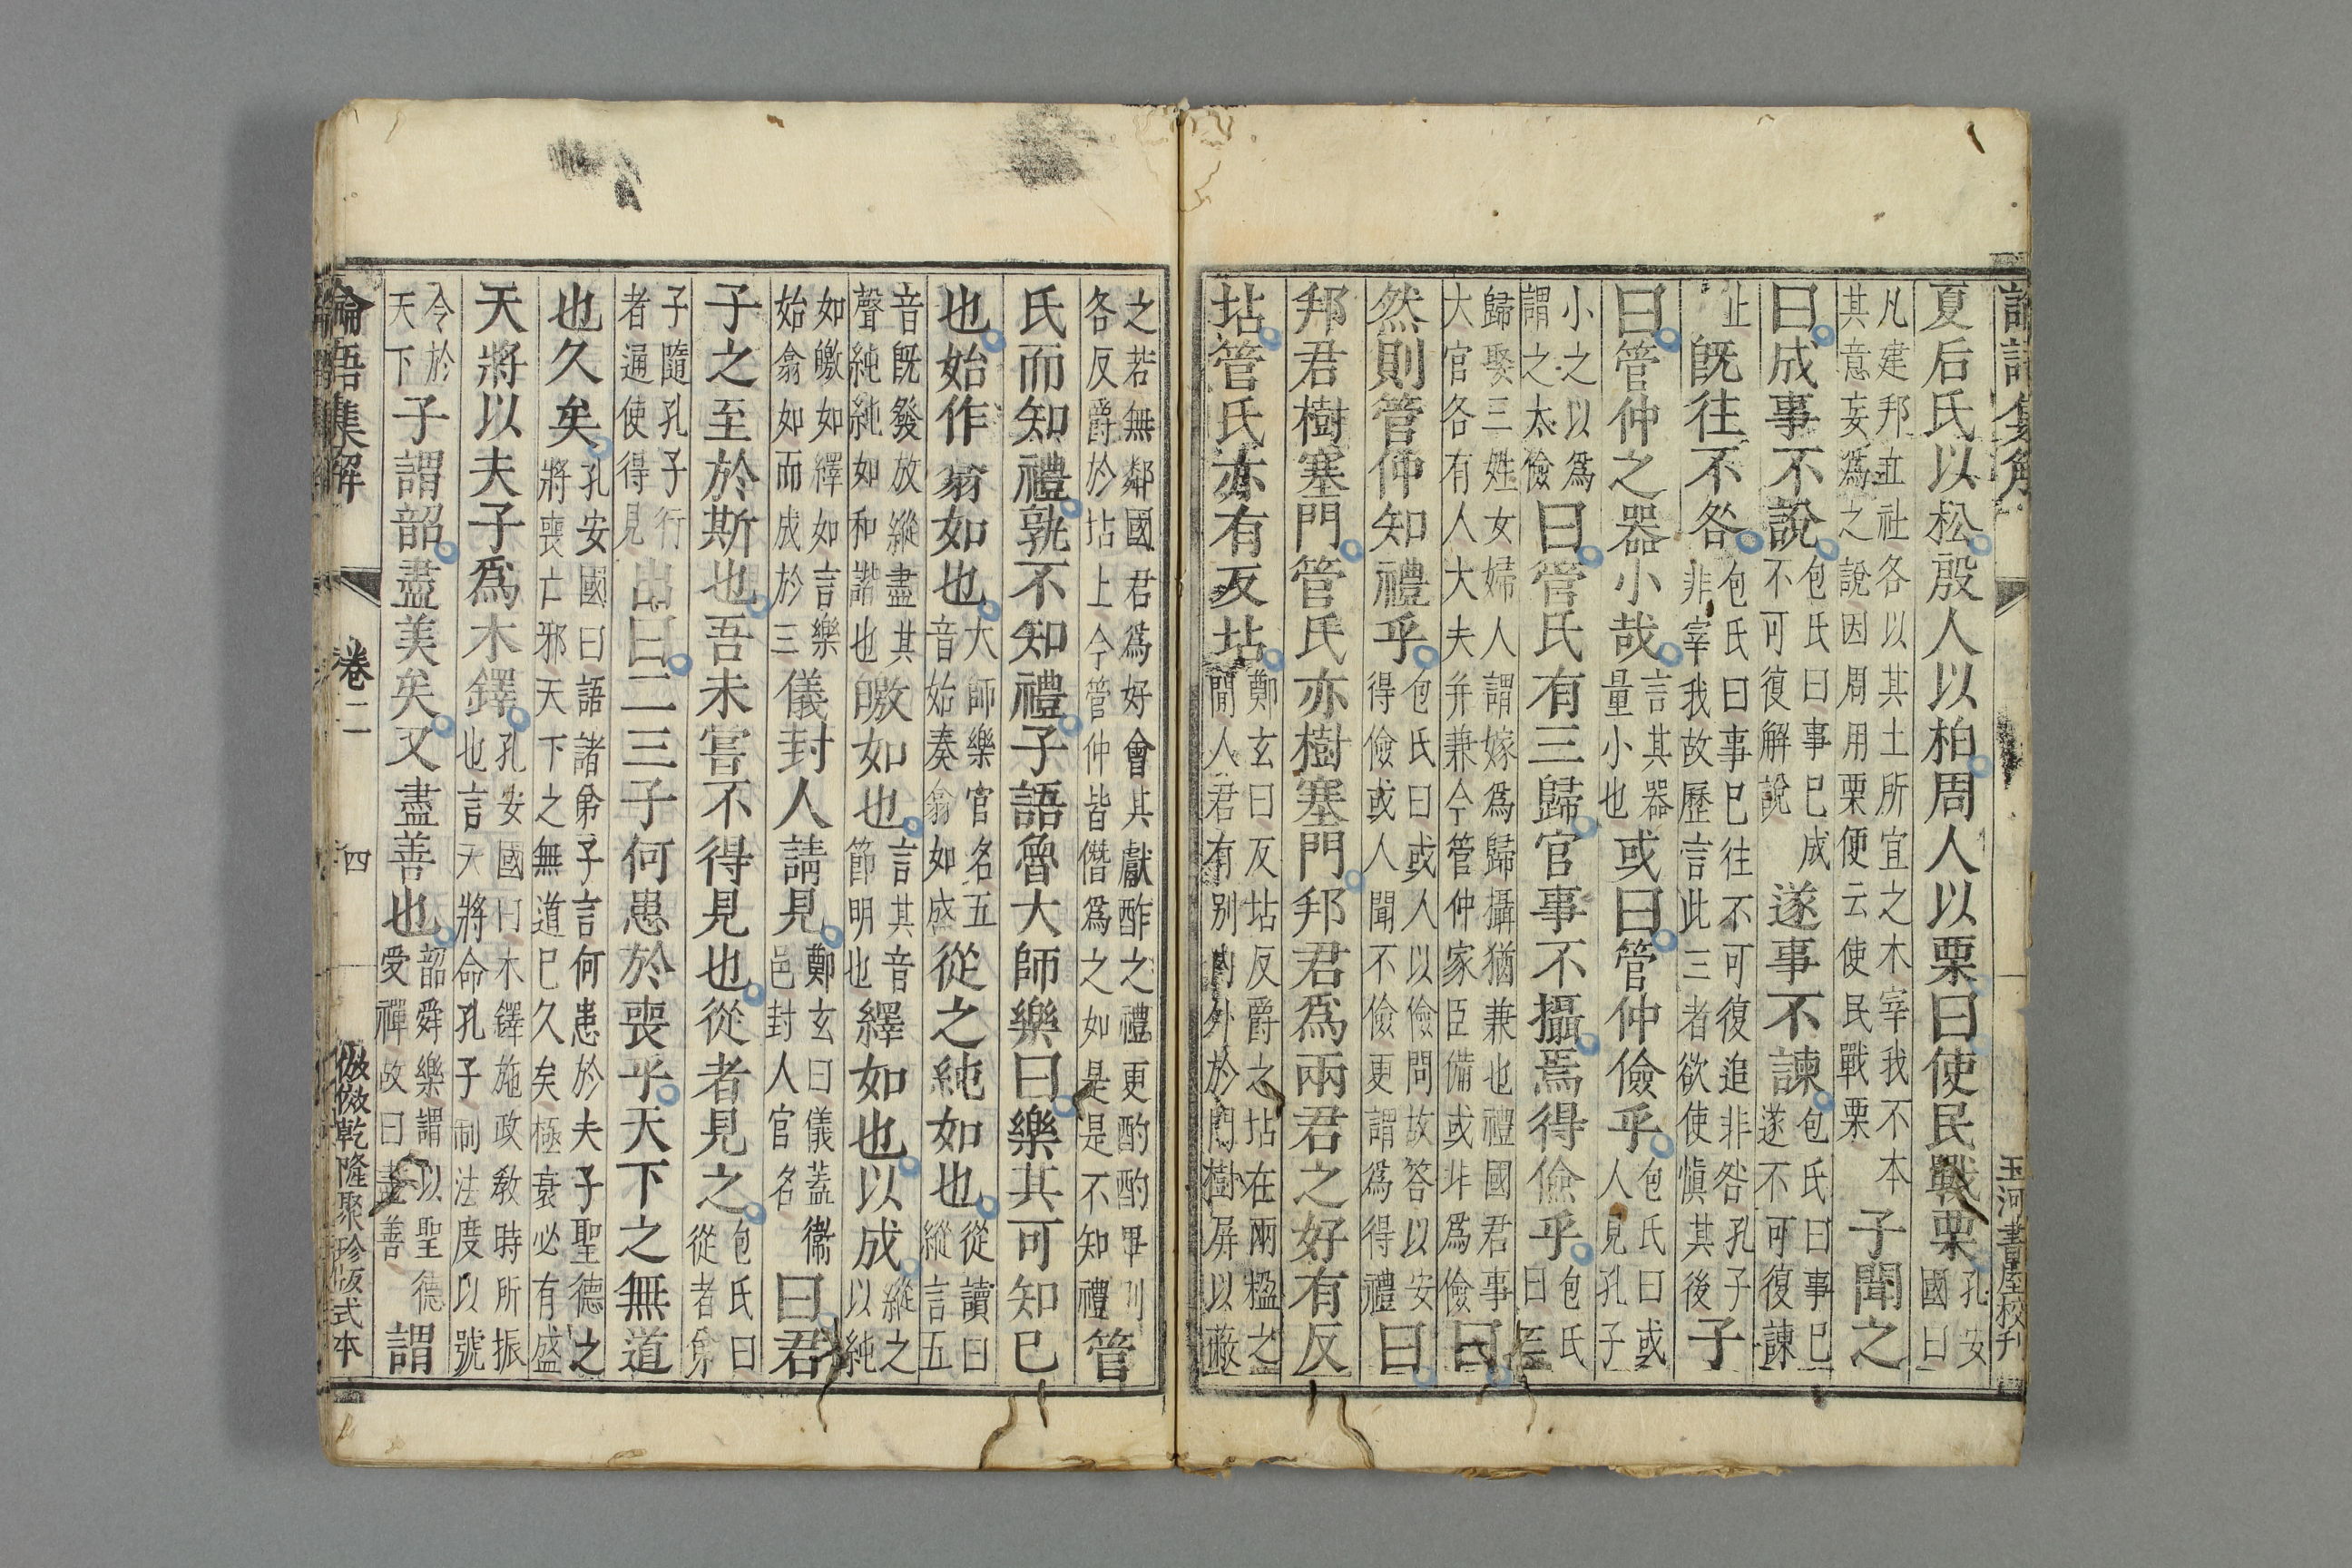 夏后氏以松殷人以柏周人以栗曰使民戰栗孔安國曰
凡建邦立社各以其土所宜之木宰我不本其意妄爲之說因周用栗便云使民戰栗子聞之
曰成事不說包氏曰事已成不可復解說遂事不諫包氏曰事已遂不可復諫
止既往不咎包氏曰事已往不可復追非咎孔子非宰我故歷言此三者欲使愼其後子
曰管仲之器小哉言其器量小也或曰管仲儉乎包氏曰或人見孔子
小之以爲謂之太儉曰管氏有三歸官事不攝焉得儉乎包氏曰三
歸娶三姓女婦人謂嫁爲歸攝猶兼也禮國君事大官各有人大夫并兼今管仲家臣備或非爲儉曰
然則管仲知禮乎包氏曰或人以儉問故答以安得儉或人聞不儉更謂爲得禮曰
邦君樹塞門管氏亦樹塞門邦君爲兩君之好有反
坫管氏亦有反坫鄭玄曰反坫反爵之坫在兩楹之間人君有别内外於門樹屏以蔽
玉河書屋校刋
之若無鄰國君爲好會其獻酢之禮更酌酌畢則各反爵於坫上今管仲皆僭爲之如是是不知禮管
氏而知禮孰不知禮子語魯大師樂曰樂其可知已
也始作翕如也大師樂官名五音始奏翕如盛從之純如也從讀曰縱言五
音既發放縱盡其聲純純如和諧也皦如也言其音節明也繹如也以成縱之以純
如皦如繹如言樂始翕如而成於三儀封人請見鄭玄曰儀蓋衞邑封人官名曰君
子之至於斯也吾未嘗不得見也從者見之包氏曰從者弟
子隨孔子行者通使得見出曰二三子何患於喪乎天下之無道
也久矣孔安國曰語諸弟子言何患於夫子聖德之將喪亡邪天下之無道已久矣極衰必有盛
天將以夫子爲木鐸孔安國曰木鐸施政教時所振也言天將命孔子制法度以號
令於天下子謂韶盡美矣又盡善也韶舜樂謂以聖德受禪故曰盡善謂
論語集解
卷二
四
倣乾隆聚珍版式本